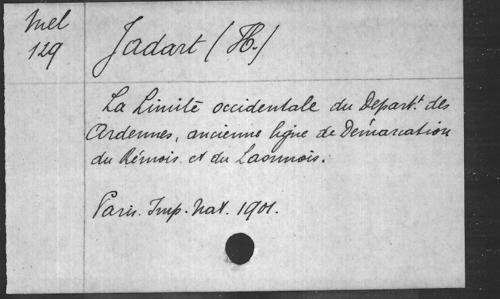 Mel
129
Jadart (H.)
La Limite occidentale du Départ.t des
Ardennes, ancienne ligne de Démarcation
du Rémois et du Laonnois.
Paris. Imp. Nat. 1901.